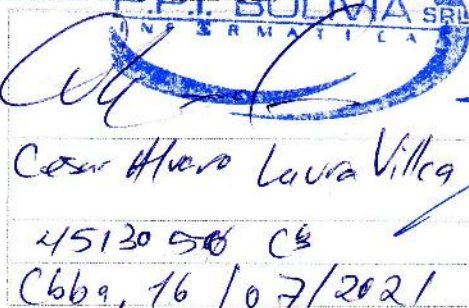 BOLIVIA SRL
INFORMATICA
Cesar Alvaro Laura Villca
Cbba, 16/07/2021